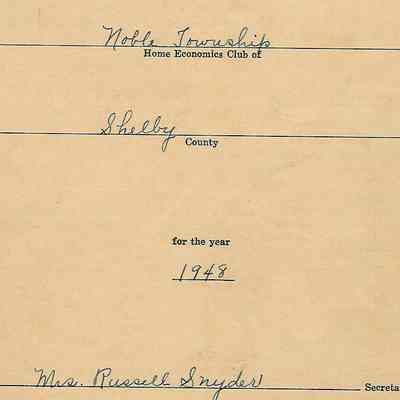 Noble Township
Home Economics Club of
Shelby
County
for the year
1948
Mrs. Russell Snyder
Secreta